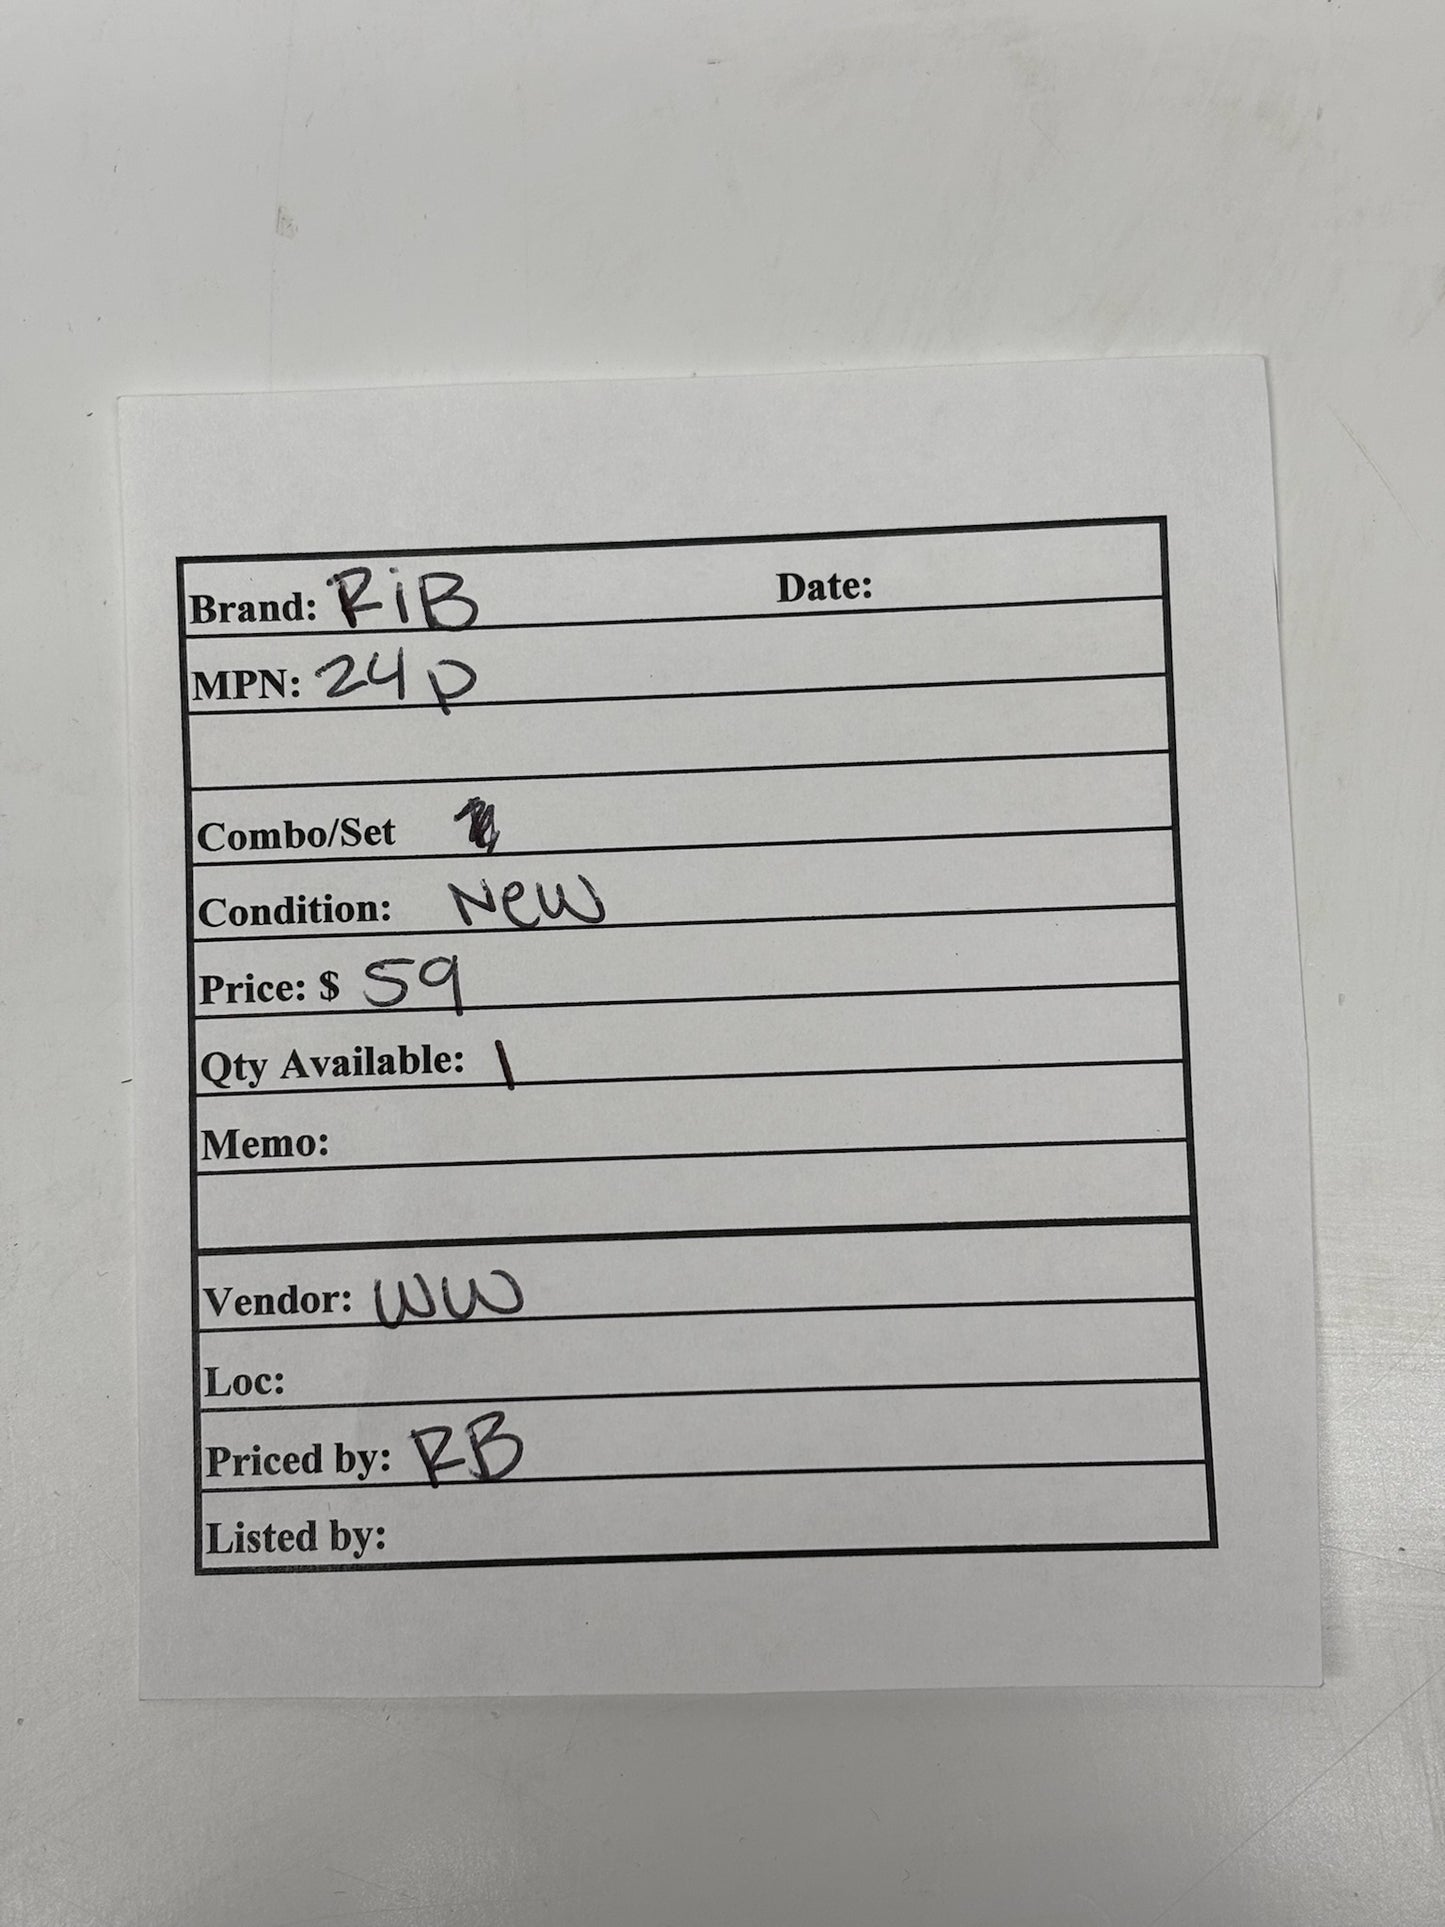 Brand: RiB Date:
MPN: 24p
Combo/Set
Condition: New
Price: $ 59
Qty Available: 1
Memo:
Vendor: WW
Loc:
Priced by: RB
Listed by: